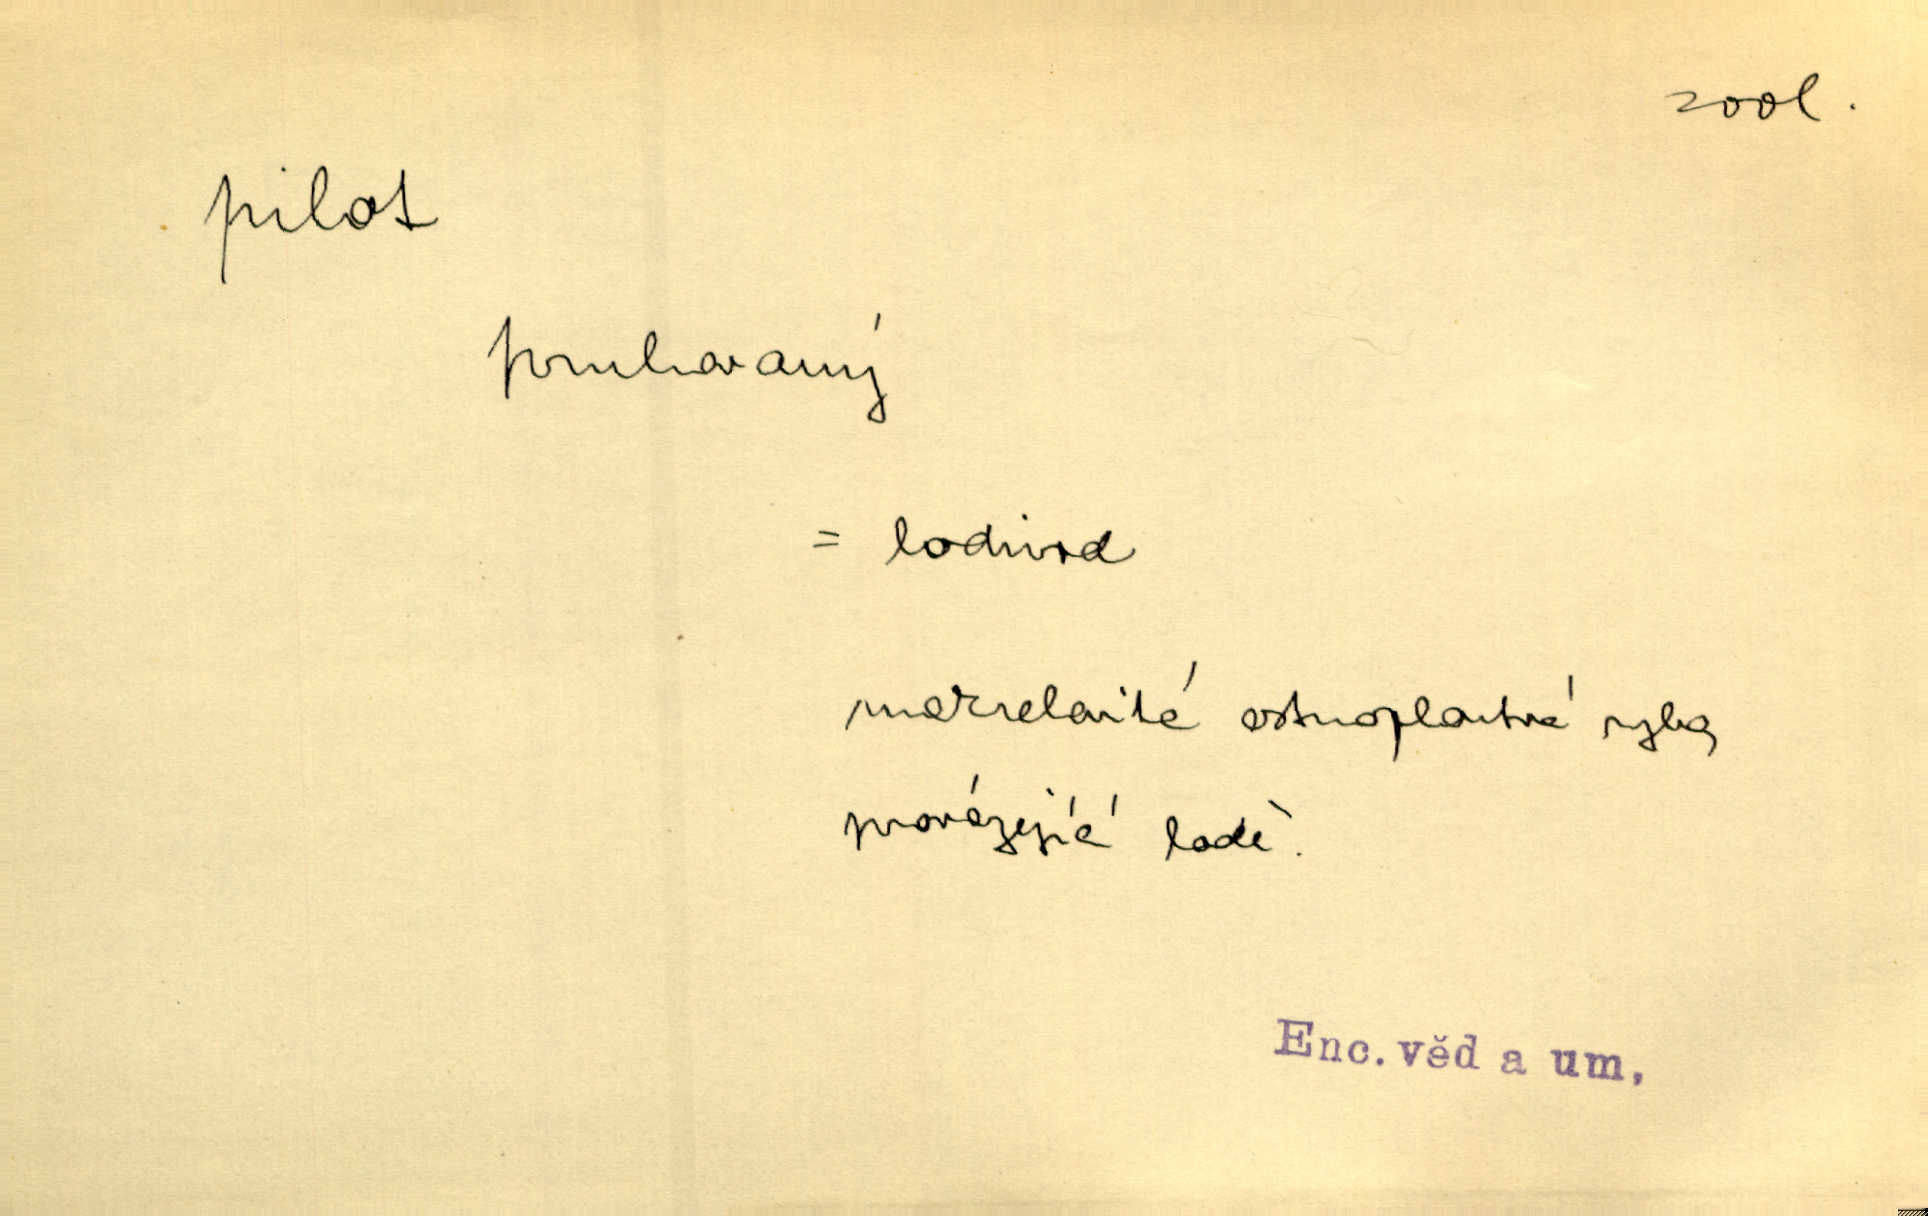 zool.
pilot
pruhovaný
= lodivod
makrelovité ostnoploutvé ryby
provázející lodě.
Enc. věd a um,